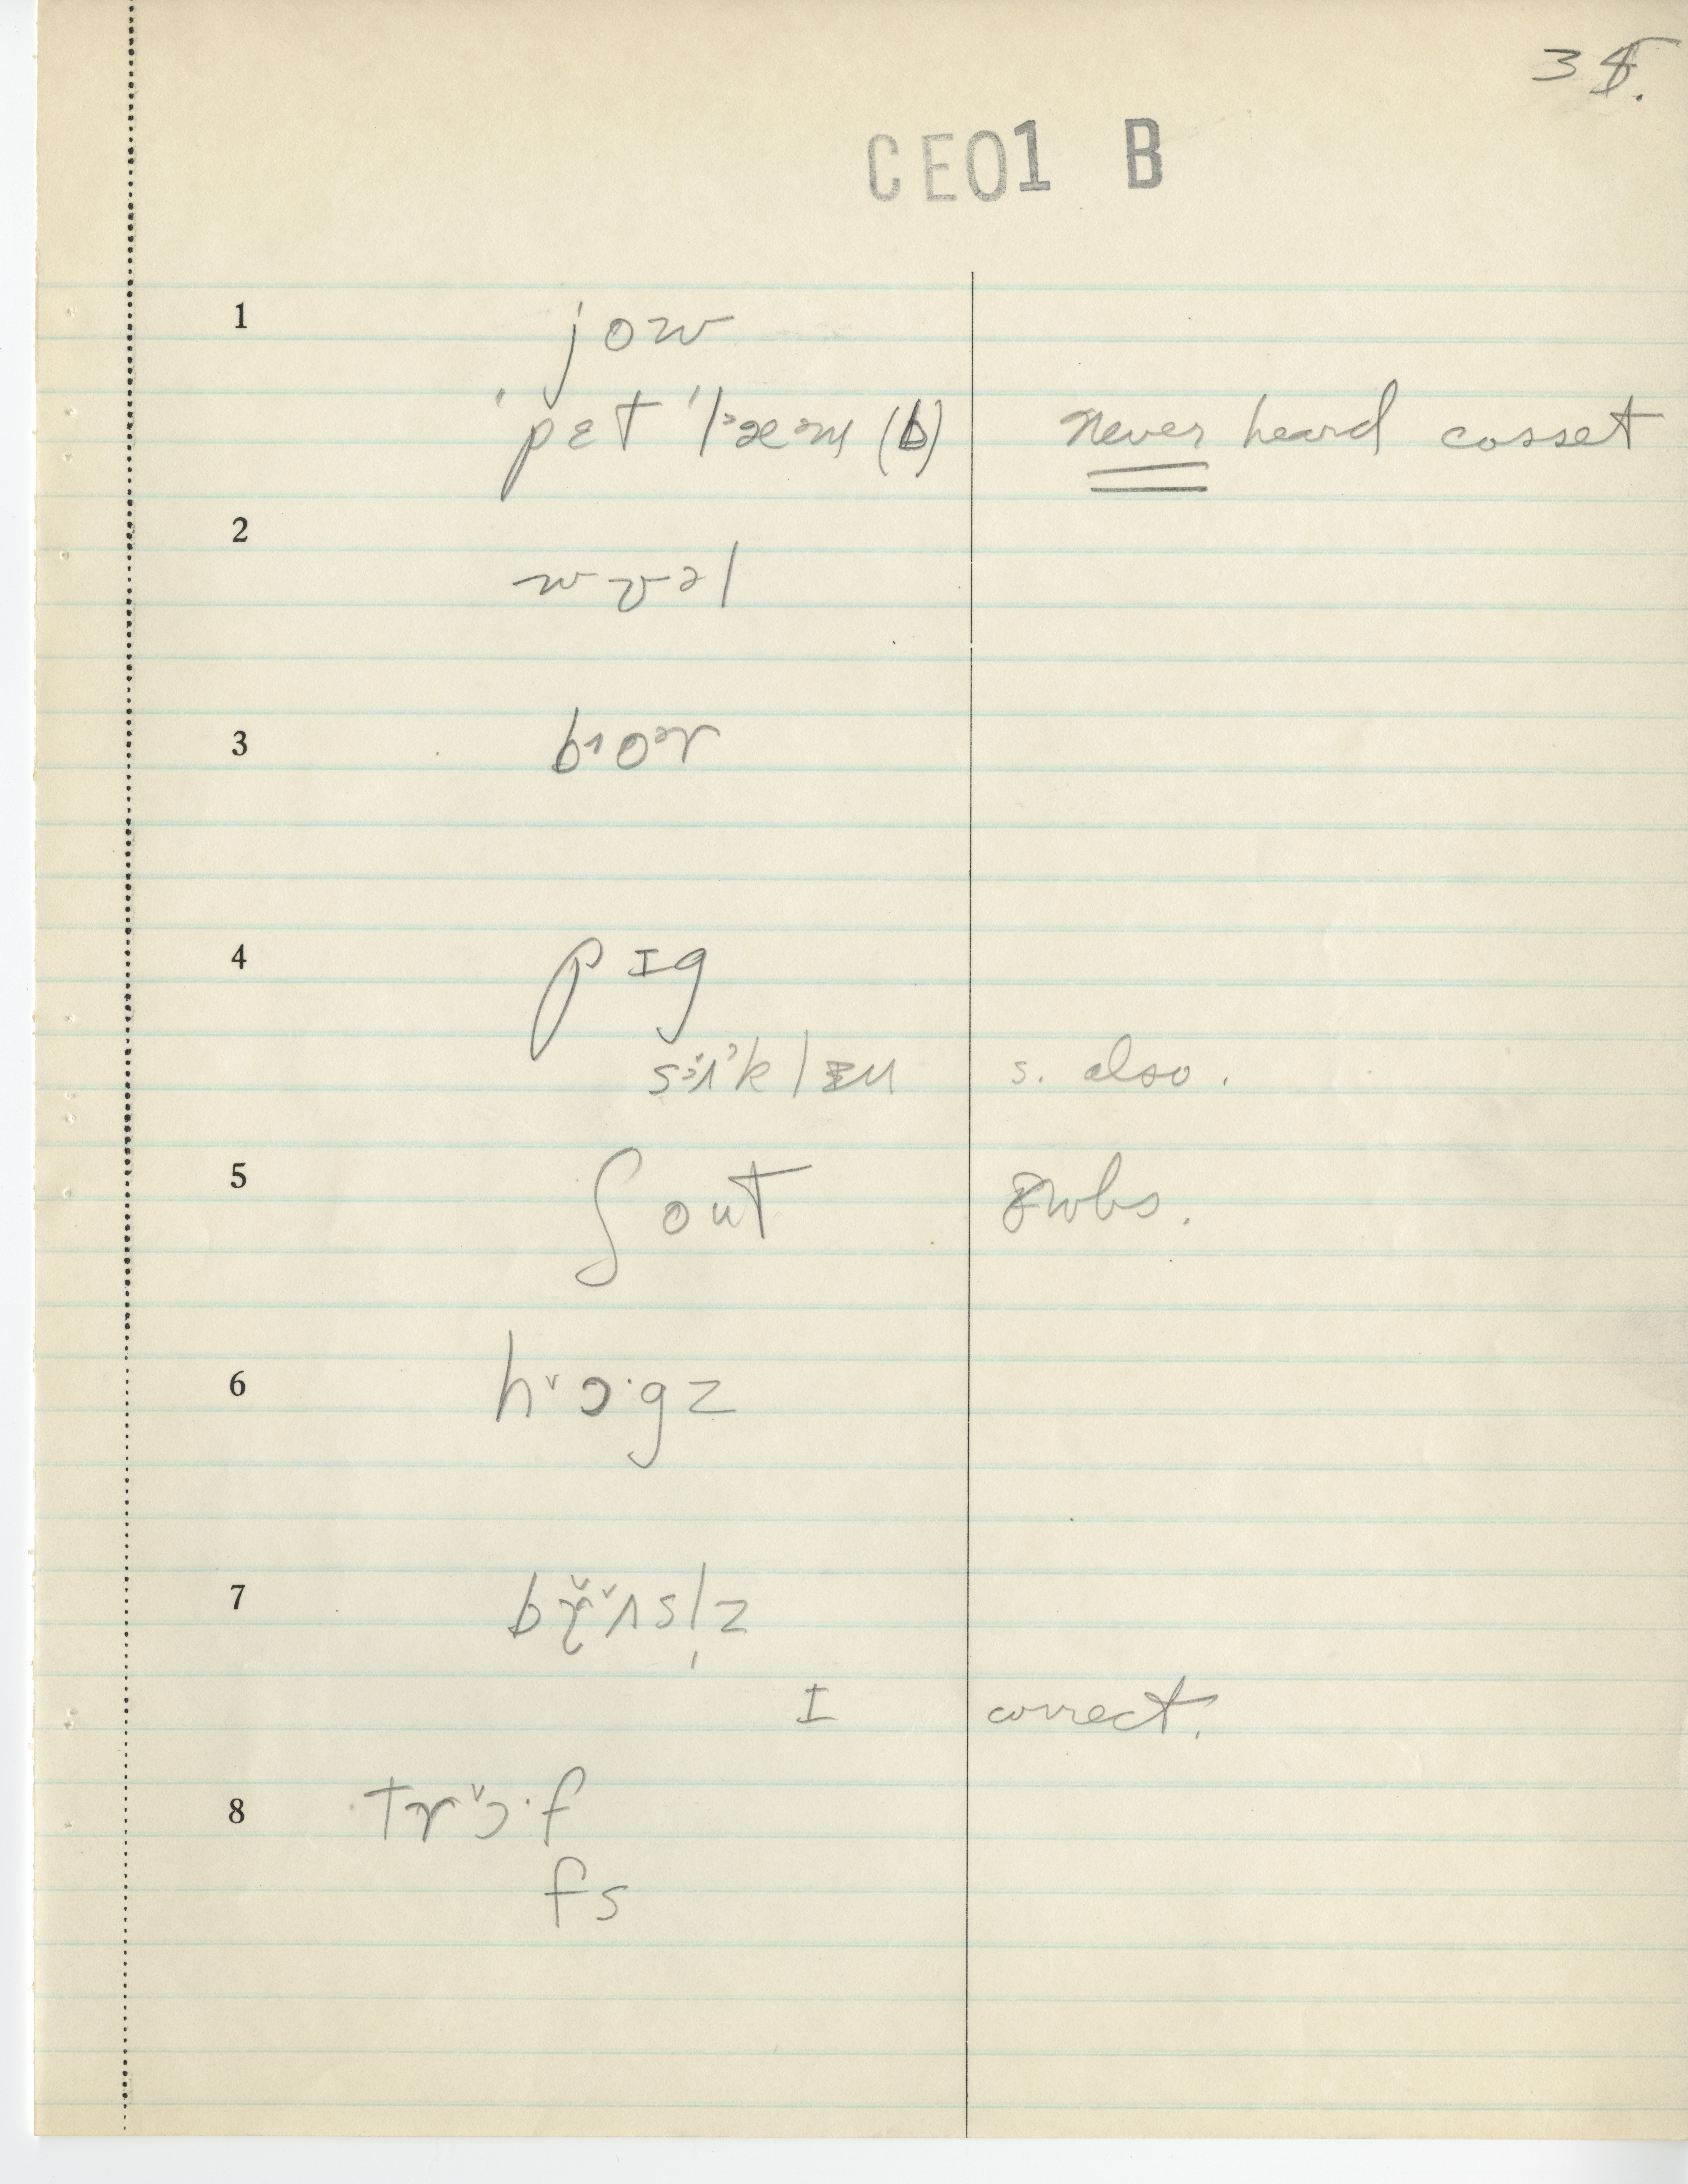 35.
CE01 B
1 jow
ˈpɛt ˈlᵊæᵊm (b) never heard cosset
2 wʊəl
3 boᵊr
4 pɪg
s. also.
5 ʃout
6 hɔ·gz
7
I correct.
8 trɔ·f
fs